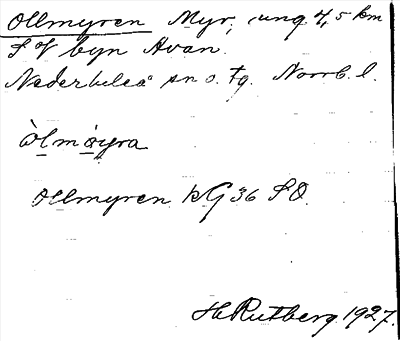 Ollmyren Myr, ung 4,5 km
S of byn Avan.
Nederluleå sn o. tg. Norrb. l.
òlmỳra
Ollmyren kG 36 SO.
H Rutberg 1927.